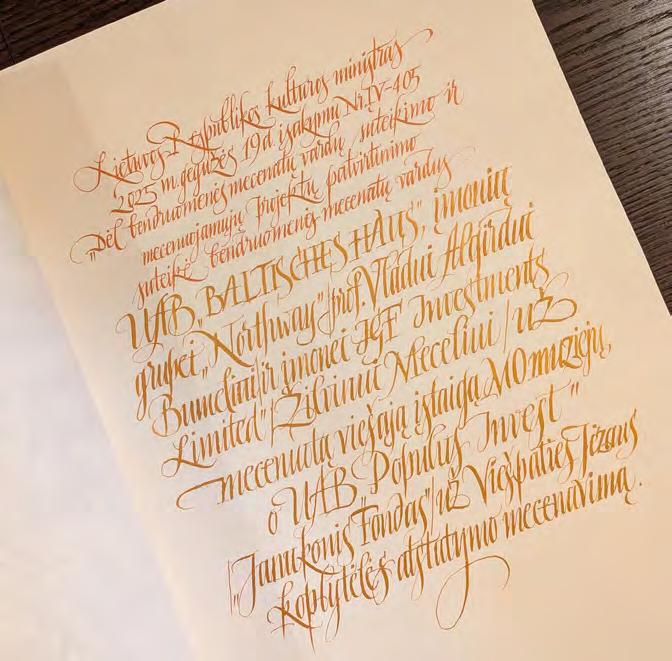 Lietuvos Respublikos kultūros ministras
2025 m. gegužės 19 d. įsakymu Nr. ĮV-405
„Dėl bendruomenės mecenatų vardų suteikimo ir
mecenuojamųjų projektų patvirtinimo
suteikė bendruomenės mecenatų vardus
UAB „BALTISCHES HAUS“, įmonių
grupei „Northway“/prof. Vladui Algirdui
Bumeliui/ir įmonei JGF Investments
Limited“/Žilvinui Meceliui/už
mecenuotą viešąją įstaigą MO muziejų,
o UAB „Populus Invest“
/„Janukonis Fondas“/už Viešpaties Jėzaus
koplytėlės atstatymo mecenavimą.